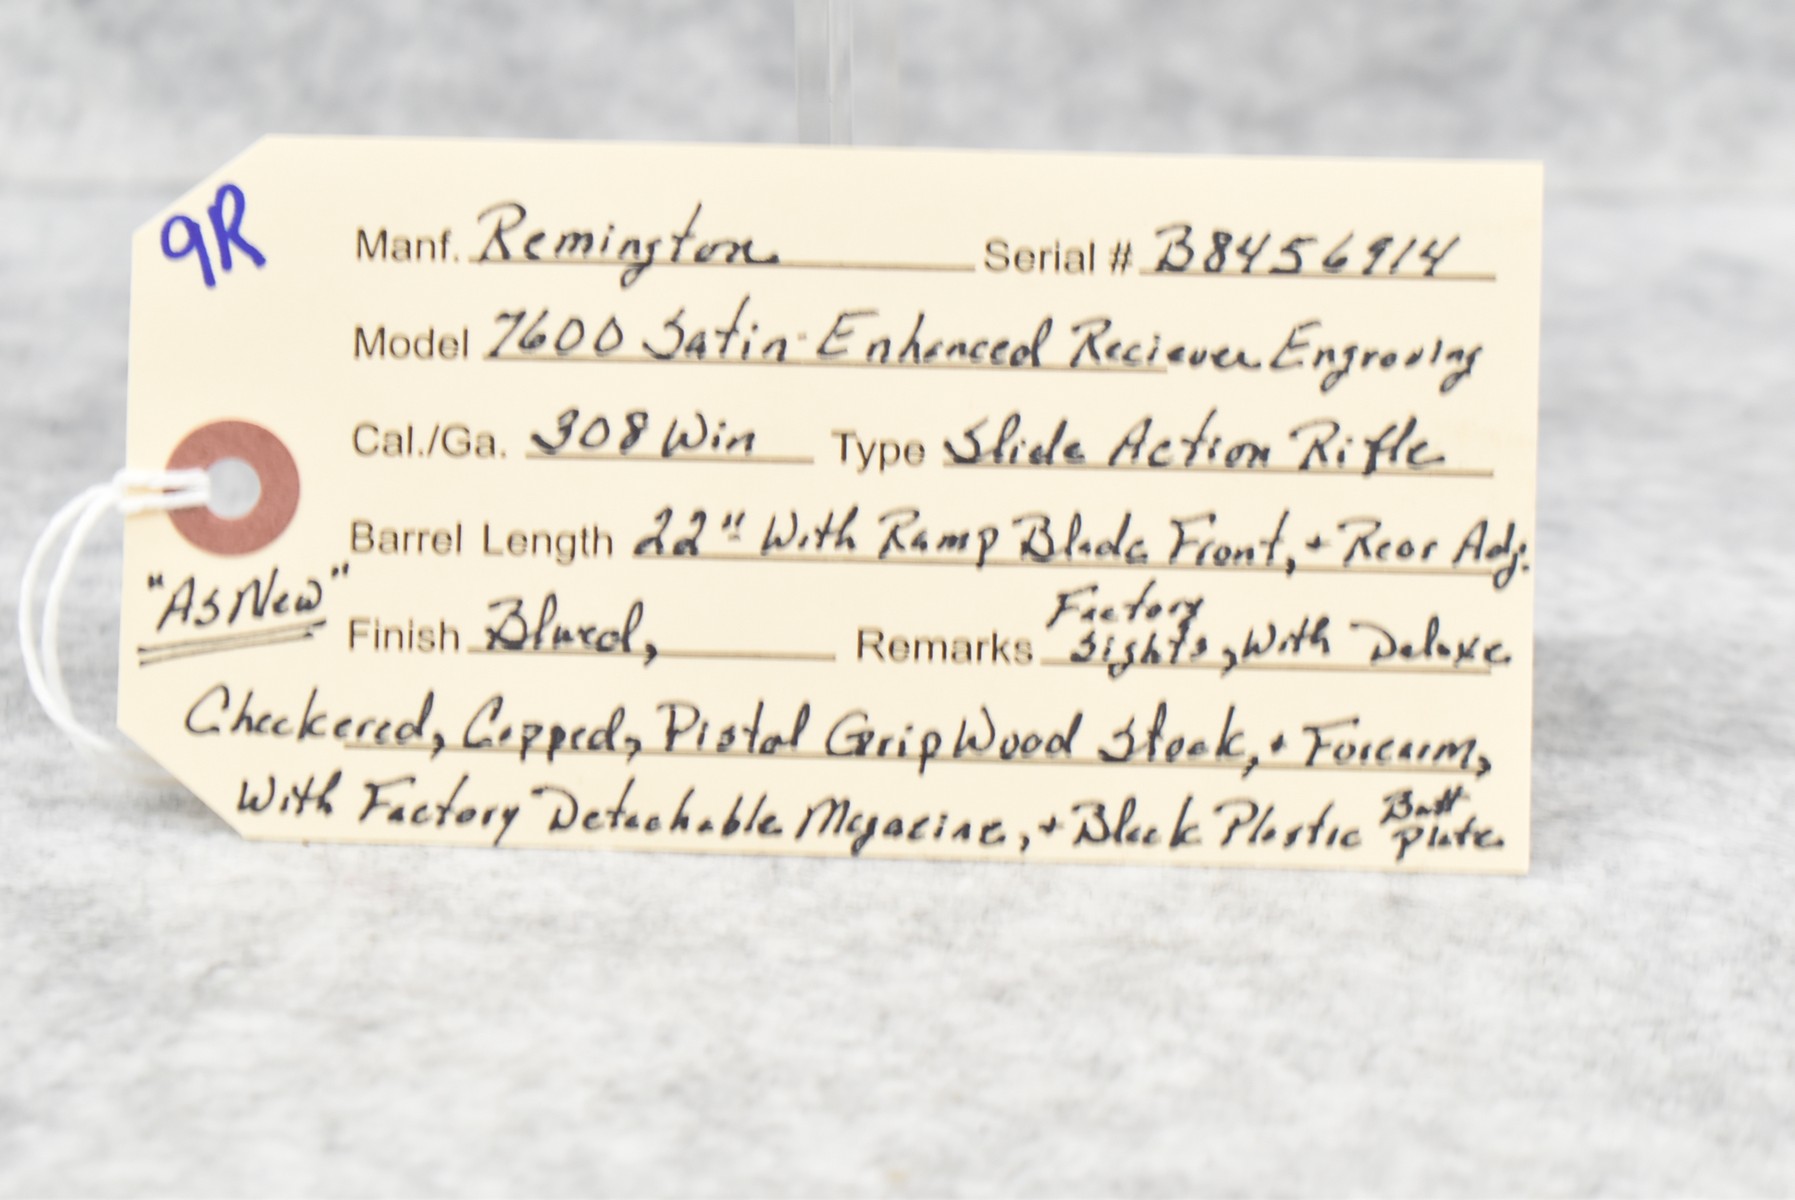 9R
Manf. Remington Serial # B8456914
Model 7600 Satin-Enhanced Reciever Engraving
Cal./Ga. 308 Win Type Slide Action Rifle
Barrel Length 22" With Ramp Blade Front, + Rear Adj.
"As New"
Finish Blued, Remarks Factory Sights, With Deluxe
Checkered, Capped, Pistol Grip Wood Stock, + Forearm,
With Factory Detachable Magazine, + Black Plastic Butt Plate